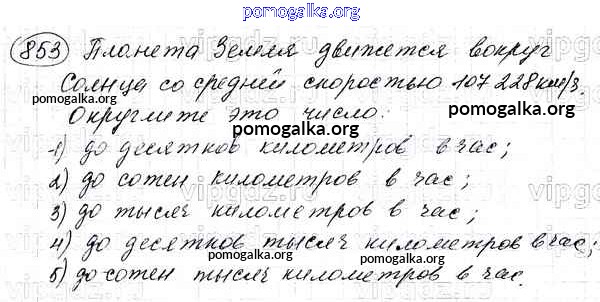 pomogalka.org
853 Планета Земля движется вокруг
Солнца со средней скоростью 107 228 км/з.
pomogalka.org pomogalka.org
Округлите это число:
pomogalka.org
1) до десятков километров в час;
2) до сотен километров в час;
3) до тысяч километров в час;
pomogalka.org pomogalka.org
4) до десятков тысяч километров в час;
5) до сотен тысяч километров в час.
pomogalka.org